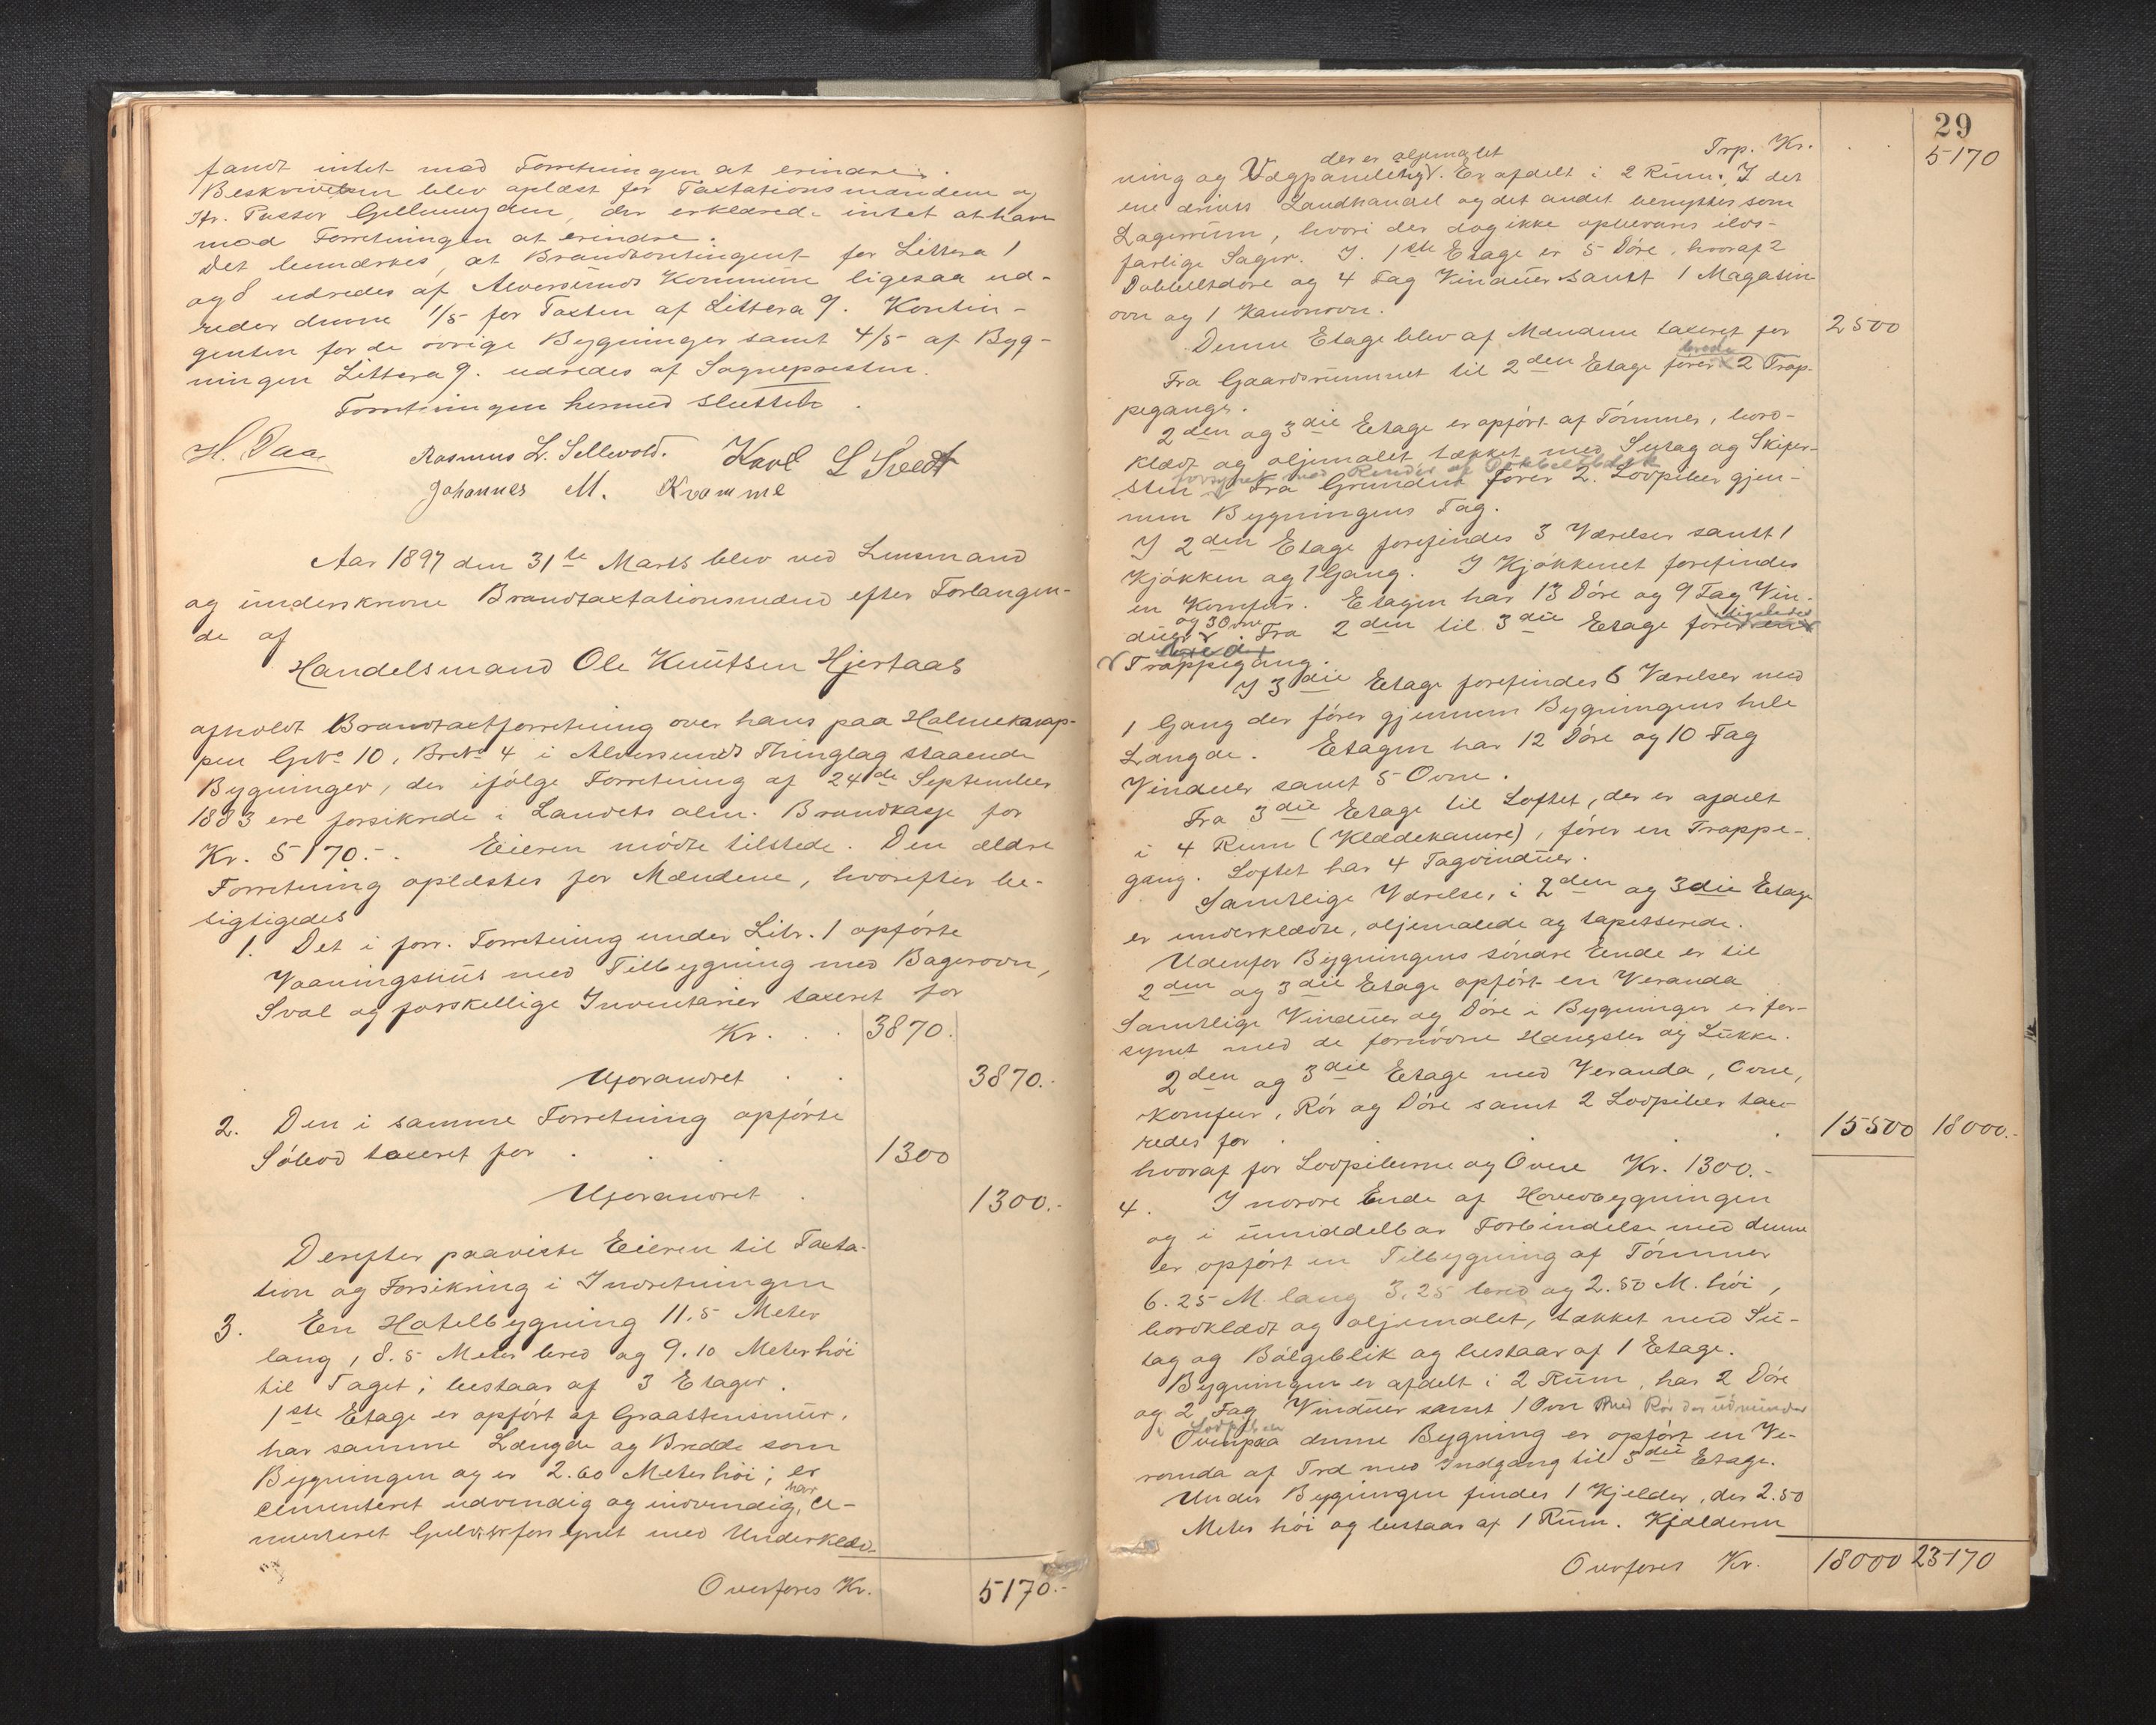 fandt intet mod Forretningen at erindre.
Beskrivelsen blev oplæst for Taxtationsmændene og
Hr. Pastor Gellemyden, der erklærede intet at have
mod Forretningen at erindre.
Det bemærkes, at Brandkontingent for Littera 1
og 8 udredes af Alversunds Kommune ligesaa ud-
reder denne 1/5 for Taxten af Littera 9. Kontin-
genten for de øvrige Bygninger samt 4/5 af Byg-
ningen Littera 9. udredes af Sognepresten.
Forretningen hermed sluttet.
H. Daa
Rasmus L. Sellevold. Karl L Tvedt
Johannes M. Kvamme
Aar 1897 den 31te Marts blev ved Lensmand
og underskrevne Brandtaxtationsmænd efter Forlangen-
de af
Handelsmand Ole Knutsen Hjertaas
afholdt Brandtaxtforretning over hans paa Holmeknap-
pen GrNo 10, BrNo 4 i Alversunds Thinglag staaende
Bygninger, der ifølge Forretning af 24de September
1883 ere forsikrede i Landets alm. Brandkasse for
Kr. 5170.-. Eieren mødte tilstede. Den ældre
Forretning oplæstes for Mændene, hvorefter be-
sigtigedes
1. Det i forr. Forretning under Litr. 1 opførte
Vaaningshus med Tilbygning med Bagerovn,
Sval og forskellige Inventarier taxeret for
Kr. . 3870.
Uforandret . . 3870.-
2. Den i samme Forretning opførte
Søbod taxeret for . . . 1300
Uforandret . 1300.-
Derefter paaviste Eieren til Taxta-
tion og Forsikring i Indretningen
3. En Hotelbygning 11.5 Meter
lang, 8.5 Meter bred og 9.10 Meter høi
til Taget; bestaar af 3 Etager.
1ste Etage er opført af Graastensmur,
har samme Længde og Bredde som
Bygningen og er 2.60 Meter høi; er
cementeret udvendig og indvendig, har ce-
menteret Gulv, er forsynet med Underklæd-
Overføres Kr. 5170.-
29
Trp. Kr. . . 5170
der er oljemalet
ning og Vægpaneling. Er afdelt i 2 Rum. I det
ene drives Landhandel og det andet benyttes som
Lagerrum, hvori der dog ikke opbevares ilds-
farlige Sager. I. 1ste Etage er 5 Døre, hvoraf 2
Dobbeltdøre og 4 Fag Vinduer samt 1 Magasin-
ovn og 1 Kanonovn.
Denne Etage blev af Mændene taxeret for 2500
brede
Fra Gaardsrummet til 2den Etage fører 2 Trap-
pegange.
2den og 3die Etage er opført af Tømmer, bord-
klædt og oljemalet, tækket med Sutag og Skifer-
forsynet med Render af Dobbeltblik
sten. Fra Grunden fører 2. Lodpiber gjen-
nem Bygningens Tag.
I 2den Etage forefindes 3 Værelser samt 1
Kjøkken og 1 Gang. I Kjøkkenet forefindes
en Komfur. Etagen har 13 Døre og 9 Fag Vin-
og 3 Ovne ligeledes
duer. Fra 2den til 3die Etage fører en
bred
Trappegang.
I 3die Etage forefindes 6 Værelser med
1 Gang der fører gjennem Bygningens hele
Længde. Etagen har 12 Døre og 10 Fag
Vinduer samt 5 Ovne.
Fra 3die Etage til Loftet, der er afdelt
i 4 Rum (Klædekamre), fører en Trappe-
gang. Loftet har 4 Tagvinduer.
Samtlige Værelser i 2den og 3die Etage
er underklædte, oljemalede og tapetserede.
Udenfor Bygningens søndre Ende er til
2den og 3die Etage opført en Veranda
Samtlige Vinduer og Døre i Bygninger er for-
synet med de fornødne Hængsler og Lukke.
2den og 3die Etage med Veranda, Ovne,
Komfur, Rør og Døre samt 2 Lodpiber taxe-
redes for . . . . . 15500 18000.-
hvoraf for Lodpiberne og Ovne Kr. 1300.-
4. I nordre Ende af Hovedbygningen
og i umiddelbar Forbindelse med denne
er opført en Tilbygning af Tømmer
6.25 M. lang 3.25 bred og 2.50 M. høi,
bordklædt og oljemalet, tækket med Su-
tag og Bølgeblik og bestaar af 1 Etage.
Bygningen er afdelt i 2 Rum, har 2 Døre
og 2 Fag Vinduer samt 1 Ovn med Rør der udmunder
i Lodpiben
Ovenpaa denne Bygning er opført en Ve-
randa af Træ med Indgang til 3die Etage.
Under Bygningen findes 1 Kjelder, der 2.50
Meter høi og bestaar af 1 Rum. Kjelderen
Overføres Kr. 18000 23170